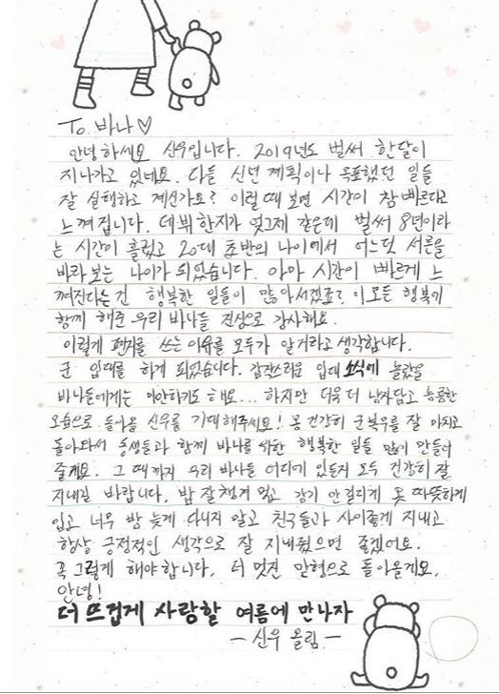 To. 바나♡
안녕하세요 신우입니다. 2019년도 벌써 한달이
지나가고 있네요. 다들 신년 계획이나 목표했던 일들
잘 실행하고 계신가요? 이럴 때 보면 시간이 참 빠르다고
느껴집니다. 데뷔한지가 엊그제 같은데 벌써 8년이라
는 시간이 흘렀고 20대 초반의 나이에서 어느덧 서른을
바라보는 나이가 되었습니다. 아마 시간이 빠르게 느
껴진다는건 행복한 일들이 많아서겠죠? 이 모든 행복에
함께 해준 우리 바나들 진심으로 감사해요.
이렇게 편지를 쓰는 이유를 모두가 알거라고 생각합니다.
군 입대를 하게 되었습니다. 갑작스러운 입대 소식에 놀랐을
바나들에게는 미안하기도 해요... 하지만 더욱 더 남자답고 늠름한
모습으로 돌아올 신우를 기대해주세요! 몸 건강히 군복무를 잘 마치고
돌아와서 동생들과 함께 바나를 위한 행복한 일들 많이 만들어
줄게요. 그 때까지 우리 바나들 어디에 있든지 모두 건강히 잘
지내길 바랍니다. 밥 잘 챙겨 먹고 감기 안 걸리게 옷 따뜻하게
입고 너무 밤 늦게 다니지 말고 친구들과 사이좋게 지내고
항상 긍정적인 생각으로 잘 지내줬으면 좋겠어요.
꼭 그렇게 해야합니다. 더 멋진 맏형으로 돌아올게요.
안녕!
더 뜨겁게 사랑할 여름에 만나자
- 신우 올림 -